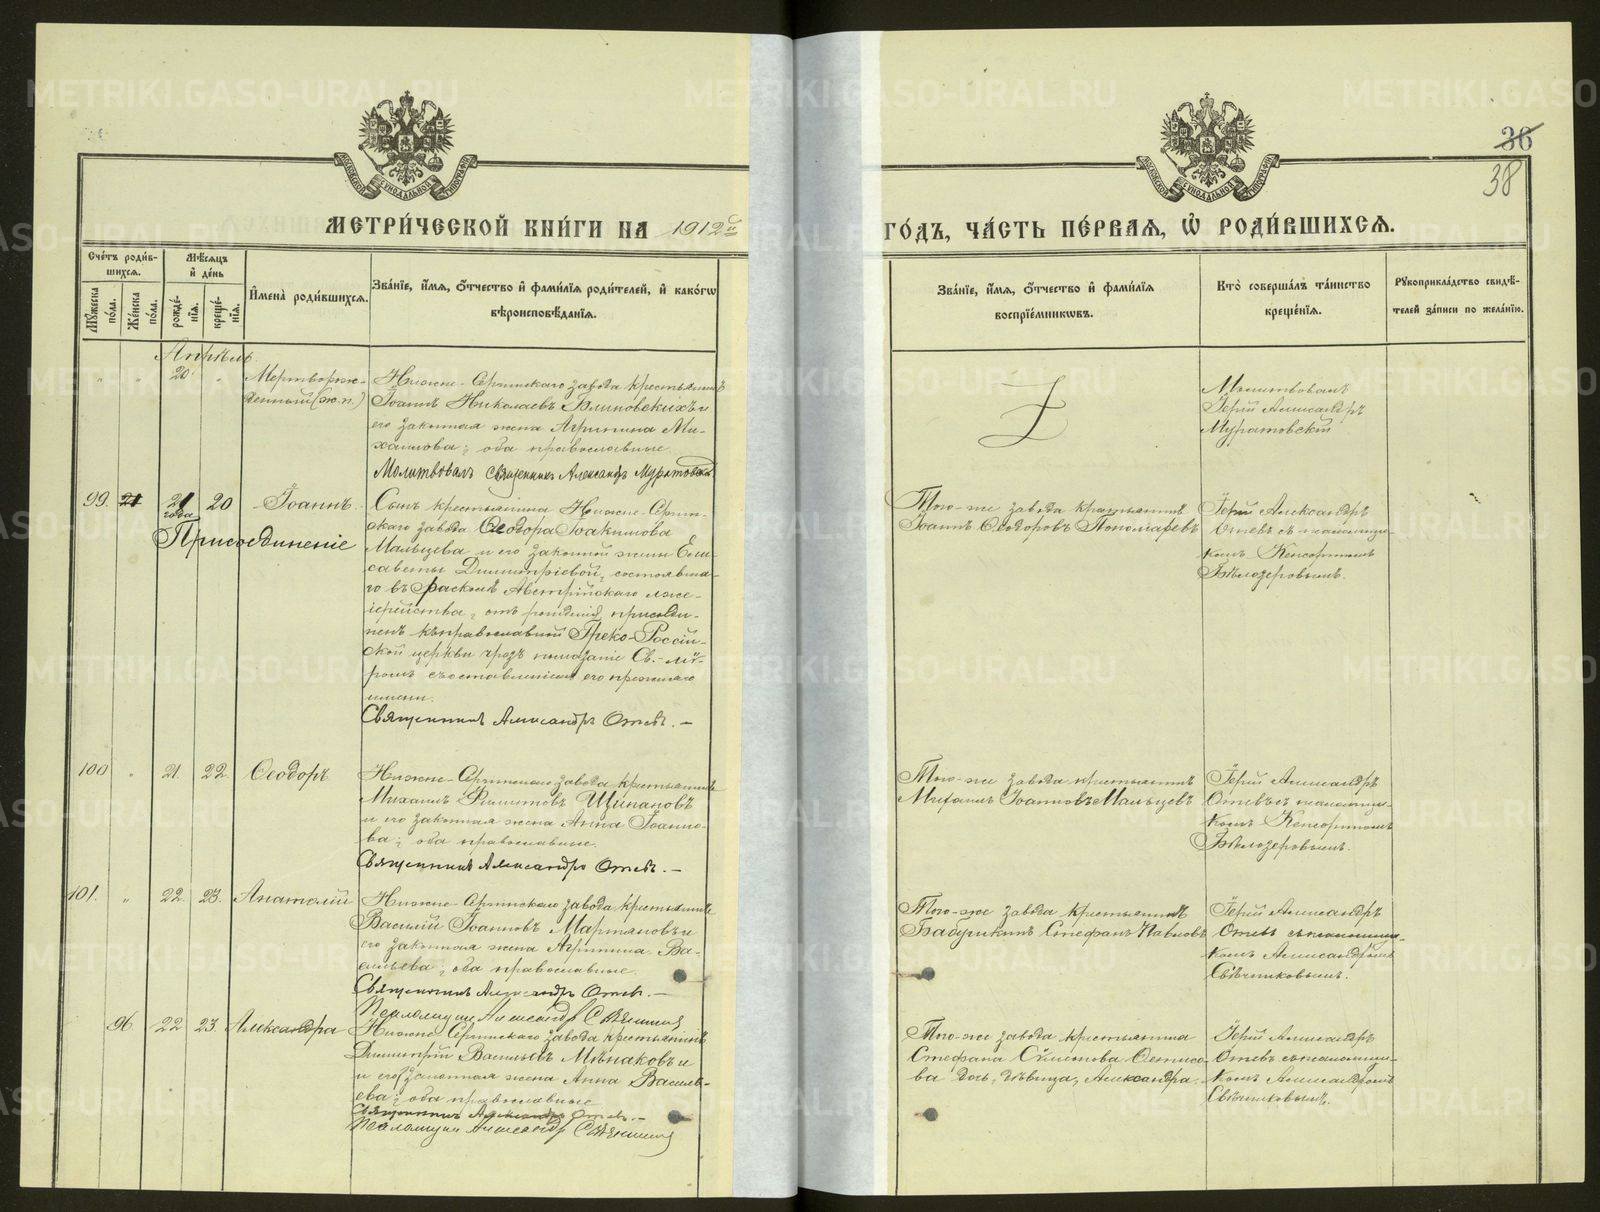 METRIKI.GASO-URAL.RU
36
38
МЕТРИ́ЧЕСКОЙ КНИ́ГИ НА 1912й
ГО́ДЪ, ЧА́СТЬ ПЕ́РВАЯ, Ѽ РОДИ́ВШИХСЯ.
Сче́тъ роди́в-
шихся.
Мꙋ́жеска по́ла.
Же́нска по́ла.
Мѣ́сяцъ и҆ де́нь
рожде́-
нїя.
креще́-
нїя.
И҆мена̀ роди́вшихся.
Зва́нїе, и҆́мя, ѻ҆́тчество и҆ фами́лїя роди́телей, и҆ како́гѡ
вѣроисповѣ́данїя.
Зва́нїе, и҆́мя, ѻ҆́тчество и҆ фами́лїя
воспрїе́мникѡвъ.
Кто̀ соверша́лъ та́инство
креще́нїя.
Рꙋкоприкла́дство свидѣ́-
телей за́писи по жела́нїю.
Апрѣль
" " 20 "
Мертворож-
денный (ж.п.)
Нижне-Сергинскаго завода крестьянинъ
Іоаннъ Николаевъ Блиновскихъ и
его законная жена Агрипина Ми-
хаилова; оба православные.
Молитвовалъ Священникъ Александръ Муратовскій
Молитвовалъ
Іерей Александръ
Муратовскій
99. 21 20 Іоаннъ.
года
Присоединеніе
Сынъ крестьянина Нижне-Сергин-
скаго завода Ѳеодора Іоакимова
Мальцева и его законной жены Ели-
саветы Димитріевой, состоявша-
го въ расколѣ Австрійскаго лже-
іерейства, отъ рожденія, присоеди-
ненъ къ православной Греко-Россій-
ской церкви чрезъ помазаніе Св.-Мѵ-
ромъ съ оставленіемъ его прежняго
имени.
Священникъ Александръ Отевъ. –
Того-же завода крестьянинъ
Іоаннъ Ѳеодоровъ Пономаревъ
Іерей Александръ
Отевъ съ псаломщи-
комъ Ксенофонтомъ
Бѣлозеровымъ.
100 " 21. 22. Ѳеодоръ
Нижне-Сергинскаго завода крестьянинъ
Михаилъ Филипповъ Щипановъ
и его законная жена Анна Іоанно-
ва; оба православные.
Священникъ Александръ Отевъ. –
Того-же завода крестьянинъ
Михаилъ Іоанновъ Мальцевъ
Іерей Александръ
Отевъ съ псаломщи-
комъ Ксенофонтомъ
Бѣлозеровымъ.
101. " 22. 23. Анатолій
Нижне-Сергинскаго завода крестьянинъ
Василій Іоанновъ Мартяновъ и
его законная жена Агрипина Ва-
сильева; оба православные.
Священникъ Александръ Отевъ. –
Псаломщикъ Александръ
Того-же завода крестьянинъ
Бабушкинъ Стефанъ Павловъ
Іерей Александръ
Отевъ съ псаломщи-
комъ Александромъ
Свѣчниковымъ.
96 22 23. Александра
Нижне-Сергинскаго завода крестьянинъ
Димитрій Васильевъ Мѣнаковъ и
и его законная жена Анна Василь-
ева; оба православные
Священникъ Александръ Отевъ. –
Псаломщикъ Александръ
Того-же завода крестьянина
Стефана
ва дочь, дѣвица, Александра.
Іерей Александръ
Отевъ съ псаломщи-
комъ Александромъ
Свѣчниковымъ.